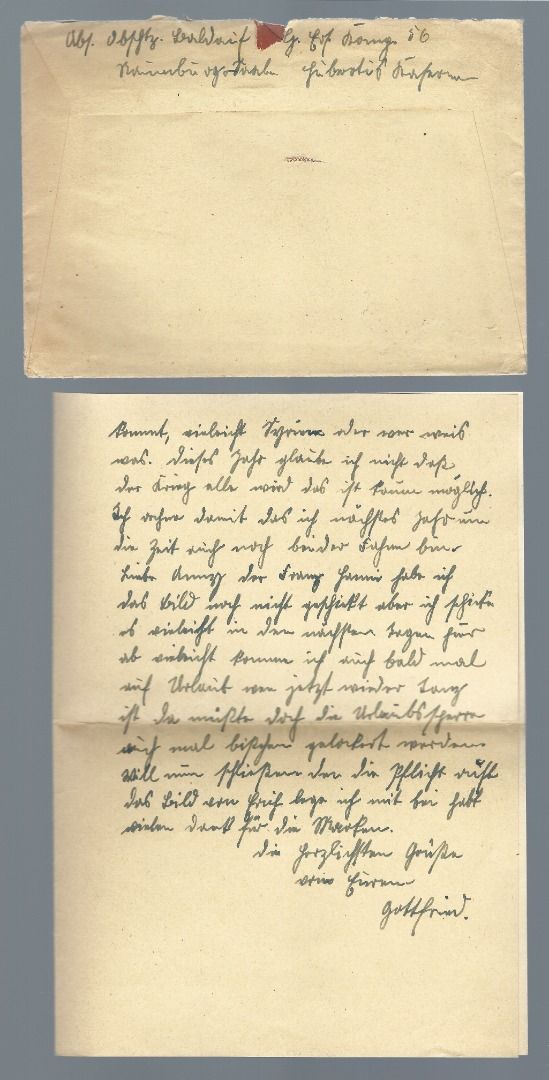 Abs. Obschtz. Baldauf Lg. Erf. Komp. 56
Naumburg-Saale Hubertus Kaserne
kommt, vieleicht Syrien oder wer weis
was. dieses Jahr glaube ich nicht daß
der Krieg alle wird das ist kaum möglich.
Ich rechne damit das ich nächstes Jahr um
die Zeit auch noch bei der Fahne bin.
Liebe Anny der Franz Hanni habe ich
das Bild noch nicht geschickt aber ich schicke
es vieleicht in den nächsten Tagen hier
ab vieleicht komme ich auch bald mal
auf Urlaub wen jetzt wieder Tanz
ist da müßte doch die Urlaubssperre
auch mal bißchen gelockert werden.
Will nun schließen den die Pflicht ruft
das Bild von Erich lege ich mit bei habt
vielen Dank für die Marken.
die herzlichsten Grüße
von Euren
Gottfried.